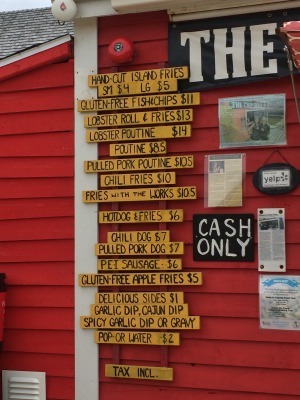 THE
HAND-CUT ISLAND FRIES
SM $4 LG $5
GLUTEN-FREE FISH&CHIPS $11
LOBSTER ROLL & FRIES $13
LOBSTER POUTINE $14
POUTINE $8.5
PULLED PORK POUTINE $10.5
CHILI FRIES $10
FRIES WITH THE WORKS $10.5
HOTDOG & FRIES $6
CHILI DOG $7
PULLED PORK DOG $7
PEI SAUSAGE $6
GLUTEN-FREE APPLE FRIES $5
DELICIOUS SIDES $1
GARLIC DIP, CAJUN DIP
SPICY GARLIC DIP OR GRAVY
POP OR WATER $2
TAX INCL.
yelp
CASH
ONLY